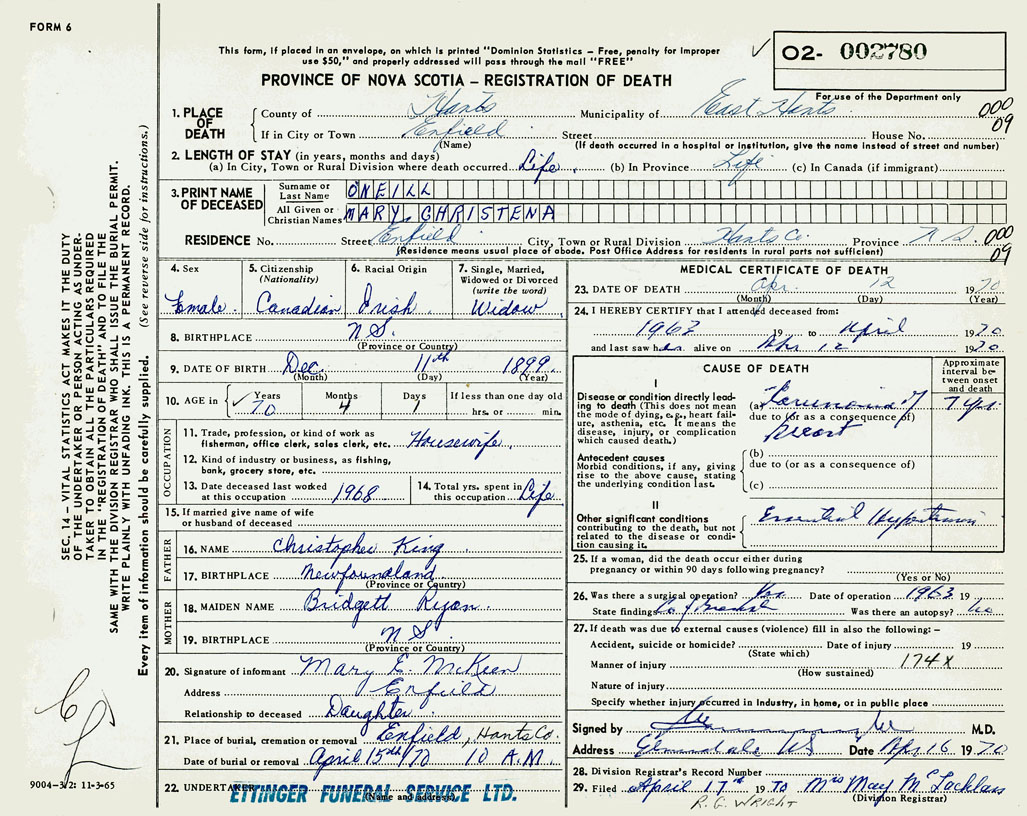 FORM 6
This form, if placed in an envelope, on which is printed "Dominion Statistics – Free, penalty for improper
use $50," and properly addressed will pass through the mail "FREE"
✓ O2- 002780
PROVINCE OF NOVA SCOTIA – REGISTRATION OF DEATH
For use of the Department only
1. PLACE OF DEATH County of Hants Municipality of East Hants 000
If in City or Town Enfield Street House No. 09
(Name) (If death occurred in a hospital or institution, give the name instead of street and number)
2. LENGTH OF STAY (in years, months and days)
(a) In City, Town or Rural Division where death occurred Life. (b) In Province Life (c) In Canada (if immigrant)
3. PRINT NAME OF DECEASED
Surname or Last Name ONEILL
All Given or Christian Names MARY, CHRISTENA
RESIDENCE No. Street Enfield City, Town or Rural Division Hants Co. Province N S. 000
(Residence means usual place of abode. Post Office Address for residents in rural parts not sufficient) 09
4. Sex
Female.
5. Citizenship
(Nationality)
Canadian
6. Racial Origin
Irish.
7. Single, Married,
Widowed or Divorced
(write the word)
Widow
8. BIRTHPLACE N S.
(Province or Country)
9. DATE OF BIRTH Dec. 11th 1899.
(Month) (Day) (Year)
10. AGE in ✓ Years Months Days If less than one day old
70 4 1 hrs. or min.
OCCUPATION
11. Trade, profession, or kind of work as
fisherman, office clerk, sales clerk, etc. Housewife.
12. Kind of industry or business, as fishing,
bank, grocery store, etc.
13. Date deceased last worked
at this occupation 1968
14. Total yrs. spent in
this occupation Life
15. If married give name of wife
or husband of deceased
FATHER
16. NAME Christopher King
17. BIRTHPLACE Newfoundland.
(Province or Country)
MOTHER
18. MAIDEN NAME Bridgett Ryan.
19. BIRTHPLACE N S.
(Province or Country)
20. Signature of informant Mary E. McKeen
Address Enfield
Relationship to deceased Daughter.
21. Place of burial, cremation or removal Enfield, Hants Co.
Date of burial or removal April 15th/70 10 A.M.
22. UNDERTAKER ETTINGER FUNERAL SERVICE LTD.
(Name and address)
MEDICAL CERTIFICATE OF DEATH
23. DATE OF DEATH Apr. 12 1970
(Month) (Day) (Year)
24. I HEREBY CERTIFY that I attended deceased from:
1963 19 to April 1970
and last saw her alive on Apr 12 1970
CAUSE OF DEATH
Approximate
interval be-
tween onset
and death
I
Disease or condition directly lead-
ing to death (This does not mean
the mode of dying, e.g., heart fail-
ure, asthenia, etc. It means the
disease, injury, or complication
which caused death.)
(a) of 7 yrs.
due to (or as a consequence of)
Antecedent causes
Morbid conditions, if any, giving
rise to the above cause, stating
the underlying condition last.
(b)
due to (or as a consequence of)
(c)
II
Other significant conditions
contributing to the death, but not
related to the disease or condi-
tion causing it.
Essential Hypertension
25. If a woman, did the death occur either during
pregnancy or within 90 days following pregnancy?
(Yes or No)
26. Was there a surgical operation? Yes Date of operation 1963 19
State findings Ca of Breast Was there an autopsy? No
27. If death was due to external causes (violence) fill in also the following: –
Accident, suicide or homicide? Date of injury 19
(State which)
Manner of injury 174X
(How sustained)
Nature of injury
Specify whether injury occurred in industry, in home, or in public place
Signed by M.D.
Address Elmsdale NS Date Apr 16 1970
28. Division Registrar's Record Number
29. Filed April 17th 1970 Mrs May McLachlan
(Division Registrar)
R. G. WRIGHT
SEC. 14 – VITAL STATISTICS ACT MAKES IT THE DUTY
OF THE UNDERTAKER OR PERSON ACTING AS UNDER-
TAKER TO OBTAIN ALL THE PARTICULARS REQUIRED
IN THE "REGISTRATION OF DEATH" AND TO FILE THE
SAME WITH THE DIVISION REGISTRAR WHO SHALL ISSUE THE BURIAL PERMIT.
WRITE PLAINLY WITH UNFADING INK. THIS IS A PERMANENT RECORD.
Every item of information should be carefully supplied. (See reverse side for instructions.)
9004-3/2: 11-3-65